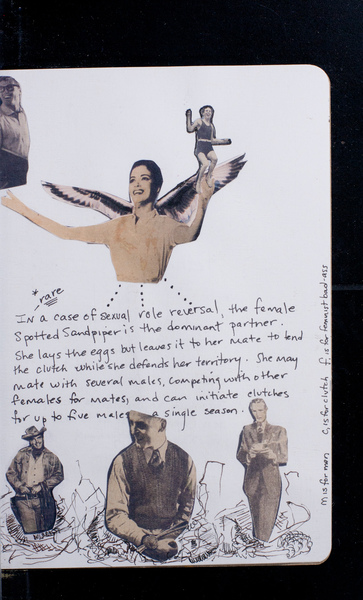 * rare
In a case of sexual role reversal, the female
Spotted Sandpiper is the dominant partner.
She lays the eggs but leaves it to her mate to tend
the clutch while she defends her territory. She may
mate with several males, competing with other
females for mates, and can initiate clutches
for up to five males a single season.
M is for men C is for clutch F is for feminist bad-ass